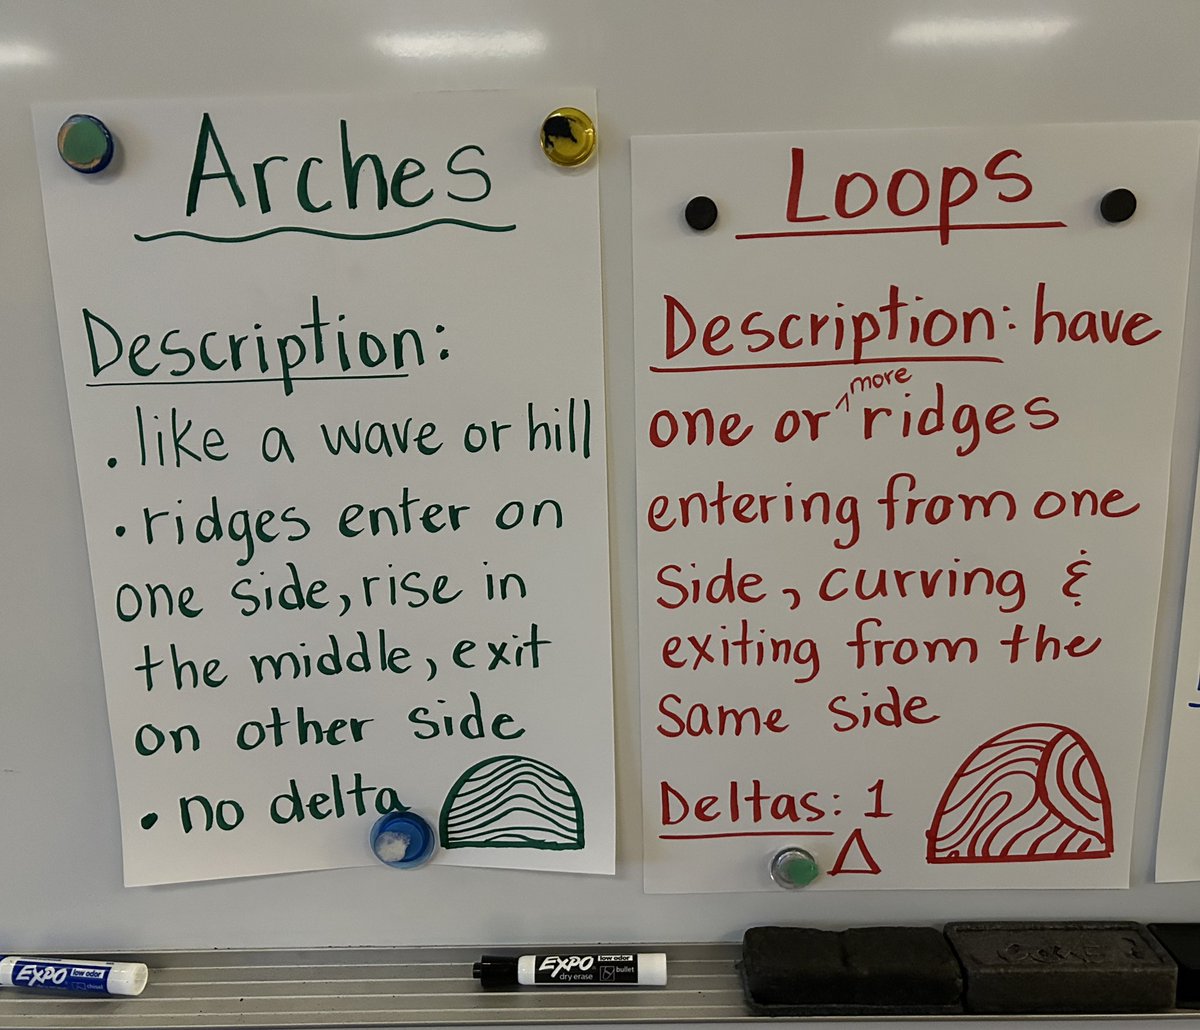 Arches
Description:
. like a wave or hill
• ridges enter on
one side, rise in
the middle, exit
on other side
• no delta
Loops
Description: have
one or ^more ridges
entering from one
side, curving &
exiting from the
same side
Deltas: 1
EXPO low odor
chisel
EXPO low odor
dry erase bullet